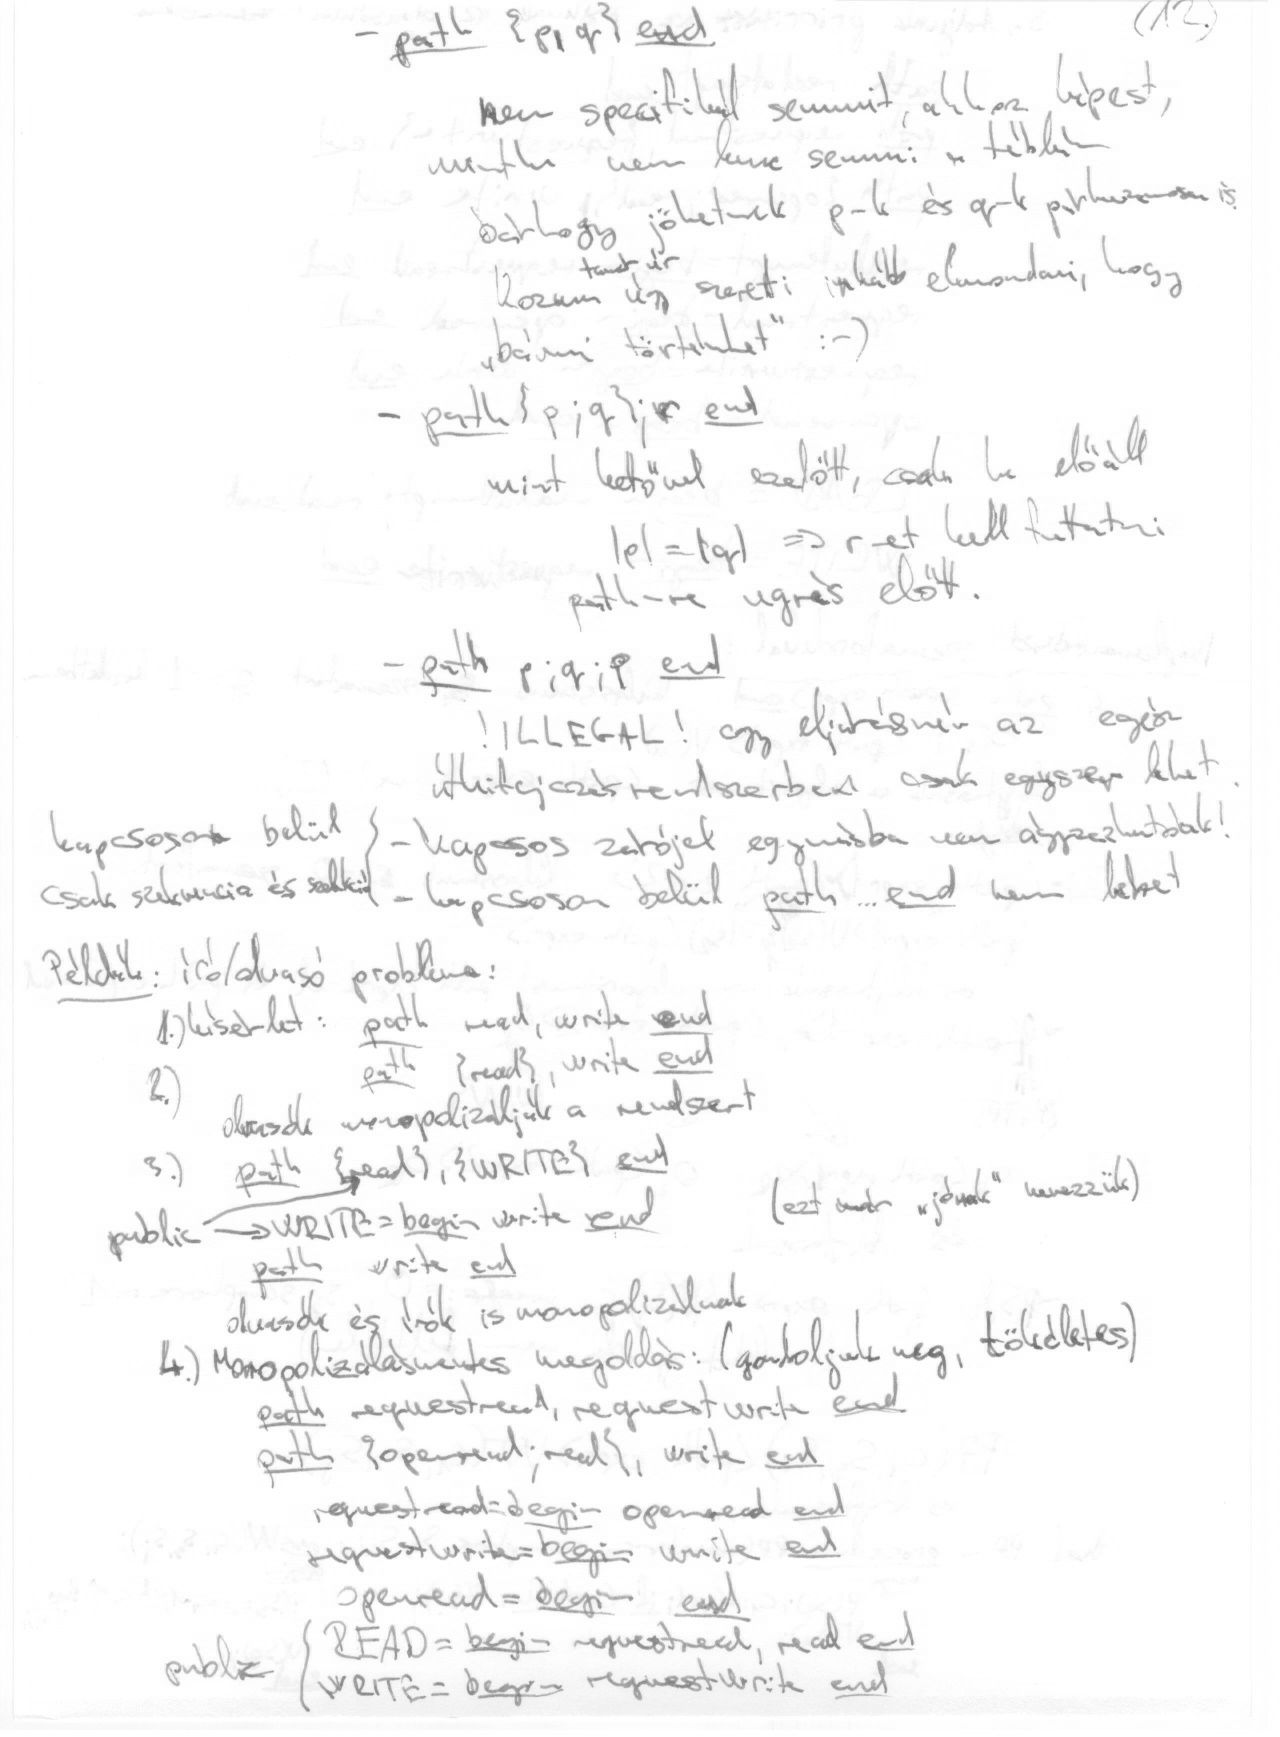 (12.)
- path {p, q} end
nem specifikál semmit, ahhoz képest,
mintha nem lenne semmi a táblán
bárhogy jöhetnek p-k és q-k párhuzamosan is.
Kozma tanár úr úgy szereti inkább elmondani, hogy
„bármi történhet" :-)
- path {p ; q} ; r end
mint kettővel ezelőtt, csak ha előáll
|p| = |q| => r-et kell futtatni
path-re ugrás előtt.
- path p ; q ; p end
! ILLEGAL ! egy eljárásnév az egész
útkifejezésrendszerben csak egyszer lehet.
kapcsoson belül } - kapcsos zárójel egymásba nem ágyazható!
csak szekvencia és } - kapcsoson belül path ... end nem lehet
Példák: író/olvasó probléma:
1.) kísérlet: path read, write end
2.) path {read}, write end
olvasók monopolizálják a rendszert
3.) path {read}, {WRITE} end
public → WRITE = begin write end (ezt már „jónak" nevezzük)
path write end
olvasók és írók is monopolizálnak
4.) Monopolizálásmentes megoldás: (gondoljuk meg, tökéletes)
path requestread, requestwrite end
path {openread; read}, write end
requestread = begin openread end
requestwrite = begin write end
openread = begin end
public { READ = begin requestread, read end
WRITE = begin requestwrite end